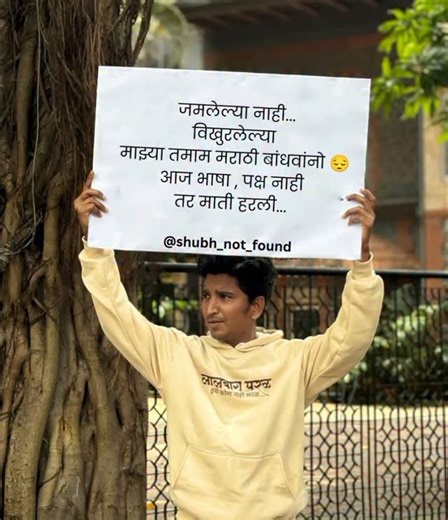 जमलेल्या नाही...
विखुरलेल्या
माझ्या तमाम मराठी बांधवांनो 😔
आज भाषा , पक्ष नाही
तर माती हरली...
@shubh_not_found
लालबाग परळ